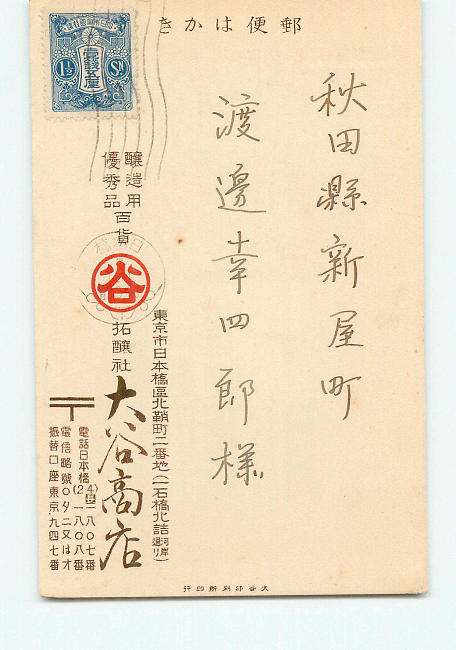 郵便はかき
秋田縣新屋町
渡邊幸四郎様
壹錢五厘
1½ Sn
醸造用
優秀品
百貨
谷
拓醸社
大谷商店
東京市日本橋區北鞘町二番地(一石橋北詰河岸通り)
電話日本橋(24)一八〇七番
一八〇八番
電信略號〇タニ又はオ
振替口座東京九四七番
大谷印刷所印行